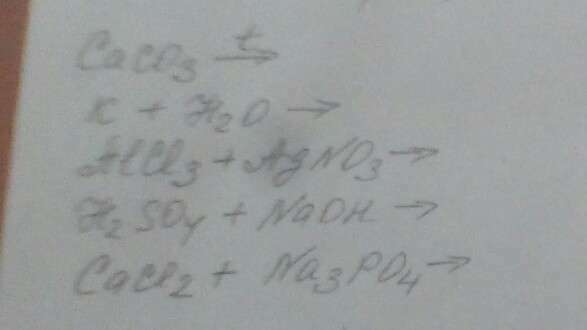 CaCO₃ t→
K + H₂O →
AlCl₃ + AgNO₃ →
H₂SO₄ + NaOH →
CaCl₂ + Na₃PO₄ →